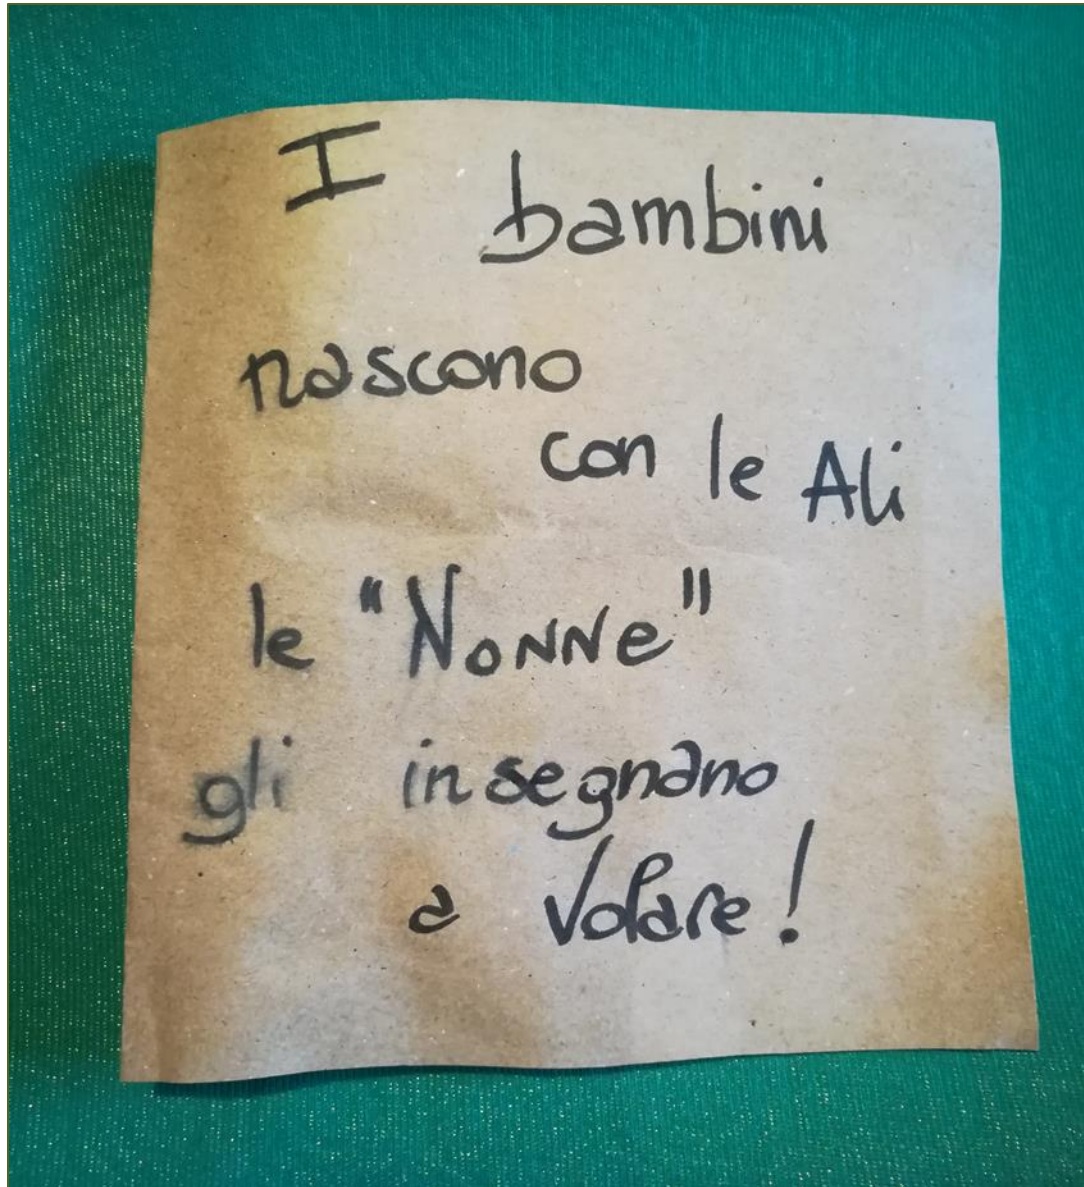 I bambini
nascono
con le Ali
le "NoNNe"
gli insegnano
a Volare!